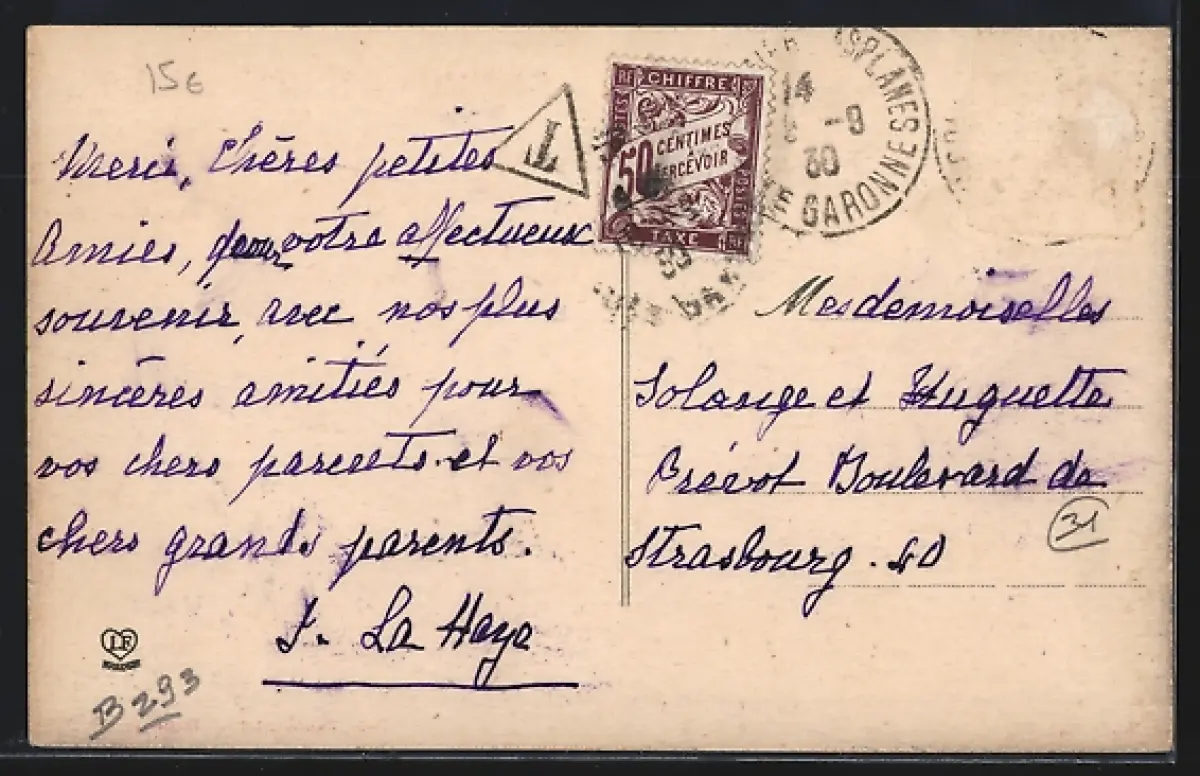 15€
Merci, Chères petites
Amies, pour votre affectueux
souvenir, avec nos plus
sincères amitiés pour
vos chers parents et vos
chers grands parents.
J. La Haye
B 293
T
RF CHIFFRE
POSTES
50 CENTIMES
A PERCEVOIR
POSTES
TAXE RF
ESPLANES
14
-9
30
GARONNE
Mesdemoiselles
Solange et Huguette
Prévot Boulevard de
Strasbourg. 40
31